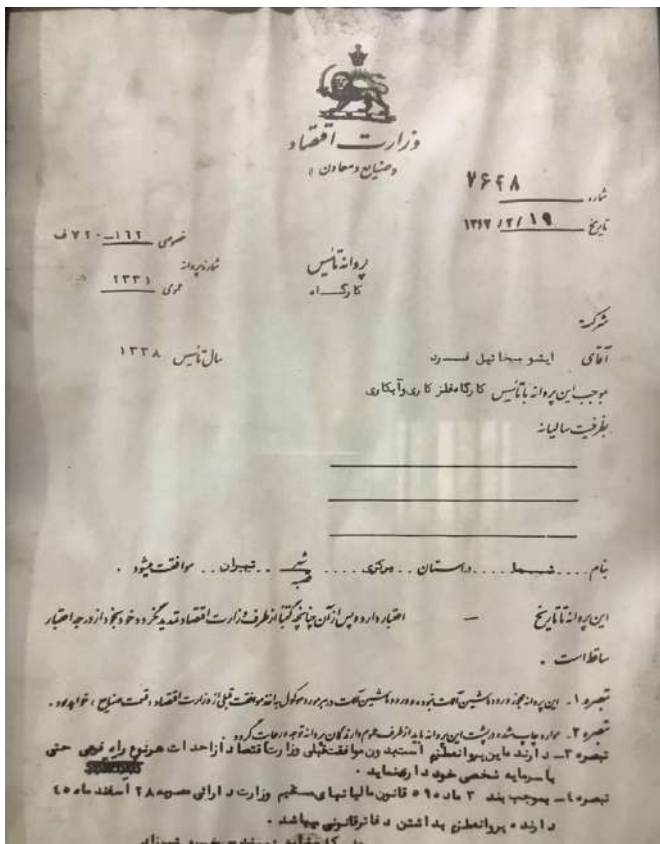 وزارت اقتصاد
«صنایع و معادن»
شماره ۷۶۴۸
تاریخ ۱۳۴۷/۲/۱۹
خصوصی ۱۶۲-۷۲۰ ف
شماره پروانه
عمومی ۲۳۳۱
پروانه تأسیس
کارگاه
شرکت
آقای ایشو میخائیل فرد سال تأسیس ۱۳۳۸
بموجب این پروانه با تأسیس کارگاه فلز کاری و آبکاری
بظرفیت سالیانه
بنام .... شما .... در استان .. مرکزی .... شهر .. تهران .. موافقت میشود .
قصبه
این پروانه تا تاریخ — اعتبار دارد و پس از آن چنانچه کتباً از طرف وزارت اقتصاد تمدید نگردد خود بخود از درجه اعتبار
ساقط است .
تبصره ۱ـ این پروانه مجوز ورود ماشین آلات نبوده و ورود ماشین آلات در هر مورد موکول به اخذ موافقت قبلی از وزارت اقتصاد (قسمت صنایع) خواهد بود .
تبصره ۲ـ موارد چاپ شده در پشت این پروانه باید از طرف عموم دارندگان پروانه توجه و رعایت گردد .
تبصره ۳ـ دارنده این پروانه ملزم است بدون موافقت قبلی وزارت اقتصاد از احداث هر نوع راه فرعی حتی
با سرمایه شخصی خود داری نماید .
تبصره ٤ـ بموجب بند ۳ ماده ۵۹ قانون مالیاتهای مستقیم وزارت دارائی مصوبه ۲۸ اسفند ماه ٤۵
دارنده پروانه ملزم بداشتن دفاتر قانونی میباشد .